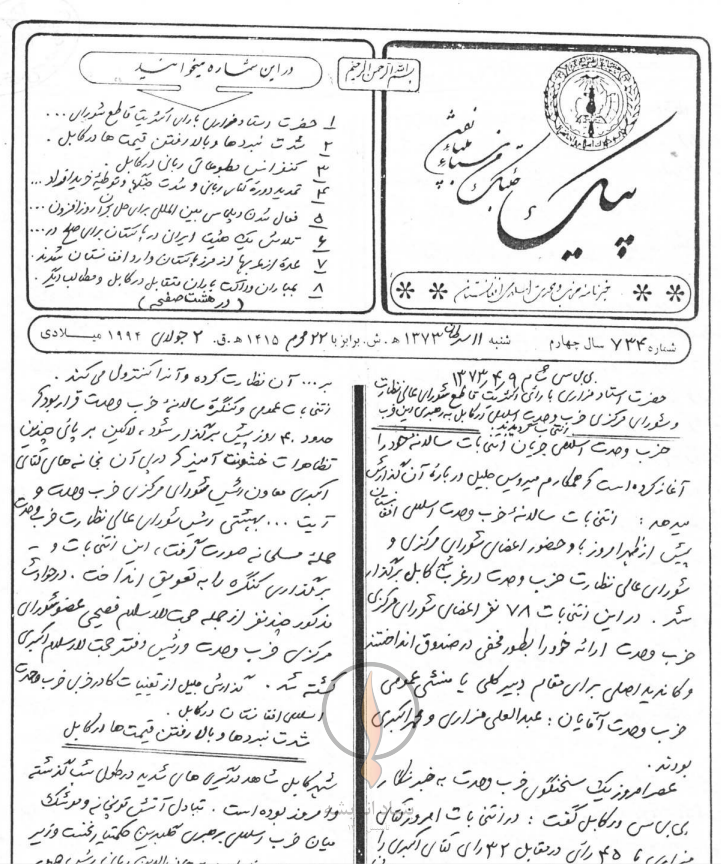 بسم الله الرحمن الرحیم
پیک
خبرنامه اسلامی افغانستان
در این شماره میخوانید
۱ حضرت استاد مزاری با رأی اکثریت قاطع شورای ...
۲ شدت نبردها و بالا رفتن قیمت ها در کابل .
۳ کنفرانس مطبوعاتی ربانی در کابل .
۴ تمدید دوره کاری ربانی و شدت جنگها و توطئه خرید افراد ...
۵ فعال شدن دیپلماسی بین المللی برای حل بحران روزافزون ...
۶ تلاش یک هیئت ایران در پاکستان برای صلح در ...
۷ عده از عربها از مرز پاکستان وارد افغانستان شدند .
۸ بمباران و راکت باران متقابل در کابل و مطالب دیگر .
( در هشت صفحه )
شماره ۷۳۴ سال چهارم شنبه ۱۱ سرطان ۱۳۷۳ ه . ش . برابر با ۲۲ محرم ۱۴۱۵ ه . ق . ۲ جولای ۱۹۹۴ میــلادی
بی بی سی ۱۳۷۳/۴/۹
حضرت استاد مزاری با رأی اکثریت قاطع شورای عالی نظارت
و شورای مرکزی حزب وحدت اسلامی در کابل به رهبری این حزب
انتخاب گردیدند .
حزب وحدت اسلامی جریان انتخابات سالانه خود را
آغاز کرده است که همکارم میرویس جلیل در باره آن گذارش
میدهد : انتخابات سالانه حزب وحدت اسلامی افغانستان
پیش از ظهر امروز با حضور اعضای شورای مرکزی و
شورای عالی نظارت حزب وحدت در غرب کابل برگذار
شد . در این انتخابات ۷۸ نفر اعضای شورای مرکزی
حزب وحدت ارائه خود را بطور مخفی در صندوق انداختند
و کاندید اصلی برای مقام دبیر کلی یا منشی عمومی
حزب وحدت آقایان : عبدالعلی مزاری و محمد اکبری
بودند .
عصر امروز یک سخنگوی حزب وحدت به خبرنگار
بی بی سی در کابل گفت : در انتخابات امروز آقای
مزاری با ۴۵ رأی در مقابل ۳۲ رای آقای اکبری را
بر ... آن نظارت کرده و آنرا کنترول می کند .
انتخابات عمومی و کنگره سالانه حزب وحدت قرار بود که
حدود ۴۰ روز پیش برگذار شود ، لاکن بر پائی چندین
تظاهرات خشونت آمیز که در پی آن بخانه های آقای
اکبری معاون رئیس شورای مرکزی حزب وحدت و
آیت ... بهشتی رئیس شورای عالی نظارت حزب وحدت
حمله مسلحانه صورت گرفت ، این انتخابات و
برگذاری کنگره را به تعویق انداخت . در حوادث
مذکور چند نفر از جمله حجت الاسلام فصیحی عضو شورای
مرکزی حزب وحدت و رئیس دفتر حجت الاسلام اکبری
کشته شد . گذارش جلیل از تعیینات کادر حزبی حزب وحدت
اسلامی افغانستان در کابل .
شدت نبردها و بالا رفتن قیمت ها در کابل
شهر کابل شاهد درگیری های شدید در طول شب گذشته
و امروز بوده است . تبادل آتش توپخانه و موشک
میان حزب اسلامی به رهبری گلبدین حکمتیار نخست وزیر